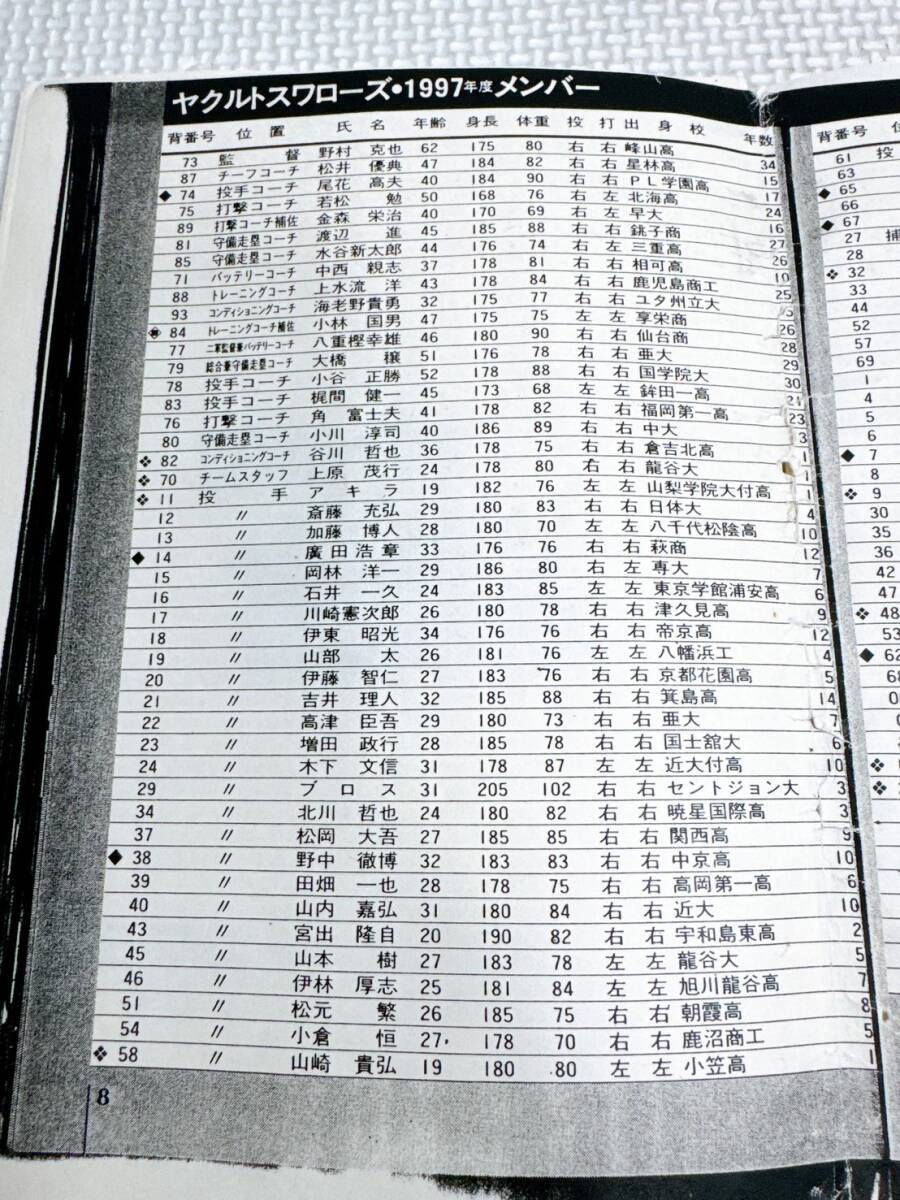 ヤクルトスワローズ•1997年度メンバー
背番号 位置 氏名 年齢 身長 体重 投 打 出身校 年数
73 監督 野村克也 62 175 80 右 右 峰山高 34
87 チーフコーチ 松井優典 47 184 82 右 右 星林高 15
◆ 74 投手コーチ 尾花高夫 40 184 90 右 右 PL学園高 17
75 打撃コーチ 若松勉 50 168 76 右 左 北海高 24
89 打撃コーチ補佐 金森栄治 40 170 69 右 左 早大 16
81 守備走塁コーチ 渡辺進 45 185 88 右 右 銚子商 27
85 守備走塁コーチ 水谷新太郎 44 176 74 右 左 三重高 26
71 バッテリーコーチ 中西親志 37 178 81 右 右 相可高 10
88 トレーニングコーチ 上水流洋 43 178 84 右 右 鹿児島商工 25
93 コンディショニングコーチ 海老野貴勇 32 175 77 右 右 ユタ州立大
84 トレーニングコーチ補佐 小林国男 47 175 75 左 左 享栄商 26
77 二軍監督兼バッテリーコーチ 八重樫幸雄 46 180 90 右 右 仙台商 28
79 総合兼守備走塁コーチ 大橋穣 51 176 78 右 右 亜大 29
78 投手コーチ 小谷正勝 52 178 88 右 右 国学院大 30
83 投手コーチ 梶間健一 45 173 68 左 左 鉾田一高 21
76 打撃コーチ 角富士夫 41 178 82 右 右 福岡第一高 23
80 守備走塁コーチ 小川淳司 40 186 89 右 右 中大 3
❖ 82 コンディショニングコーチ 谷川哲也 36 178 75 右 右 倉吉北高 1
❖ 70 チームスタッフ 上原茂行 24 178 80 右 右 龍谷大 1
❖ 11 投手 アキラ 19 182 76 左 左 山梨学院大付高 1
12 〃 斎藤充弘 29 180 83 右 右 日体大 4
13 〃 加藤博人 28 180 70 左 左 八千代松陰高 10
◆ 14 〃 廣田浩章 33 176 76 右 右 萩商 12
15 〃 岡林洋一 29 186 80 右 左 専大 7
16 〃 石井一久 24 183 85 左 左 東京学館浦安高 6
17 〃 川崎憲次郎 26 180 78 右 右 津久見高 9
18 〃 伊東昭光 34 176 76 右 右 帝京高 12
19 〃 山部太 26 181 76 左 左 八幡浜工 4
20 〃 伊藤智仁 27 183 76 右 右 京都花園高 5
21 〃 吉井理人 32 185 88 右 右 箕島高 14
22 〃 高津臣吾 29 180 73 右 右 亜大 7
23 〃 増田政行 28 185 78 右 右 国士舘大 6
24 〃 木下文信 31 178 87 左 左 近大付高 10
29 〃 ブロス 31 205 102 右 右 セントジョン大 3
34 〃 北川哲也 24 180 82 右 右 暁星国際高 3
37 〃 松岡大吾 27 185 85 右 右 関西高 9
◆ 38 〃 野中徹博 32 183 83 右 右 中京高 10
39 〃 田畑一也 28 178 75 右 右 高岡第一高 6
40 〃 山内嘉弘 31 180 84 右 右 近大 10
43 〃 宮出隆自 20 190 82 右 右 宇和島東高 2
45 〃 山本樹 27 183 78 左 左 龍谷大 5
46 〃 伊林厚志 25 181 84 左 左 旭川龍谷高 7
51 〃 松元繁 26 185 75 右 右 朝霞高 8
54 〃 小倉恒 27 178 70 右 右 鹿沼商工 5
❖ 58 〃 山崎貴弘 19 180 80 左 左 小笠高 1
8
背番号 位
61 投
63
◆ 65
66
◆ 67
27 捕
28
❖ 32
33
44
52
57
69
1
4
5
6
◆ 7
8
❖ 9
30
35
36
42
47
❖ 48
53
◆ 62
68
0
00